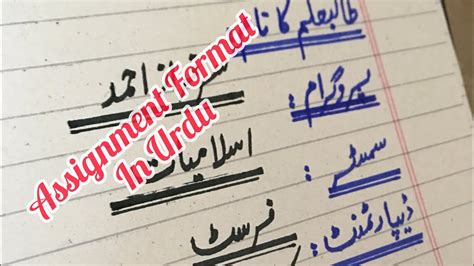 طالبعلم کا نام
احمد
پروگرام :
اسلامیات
سمسٹر :
فرسٹ
ڈیپارٹمنٹ :
Assignment Format
In Urdu